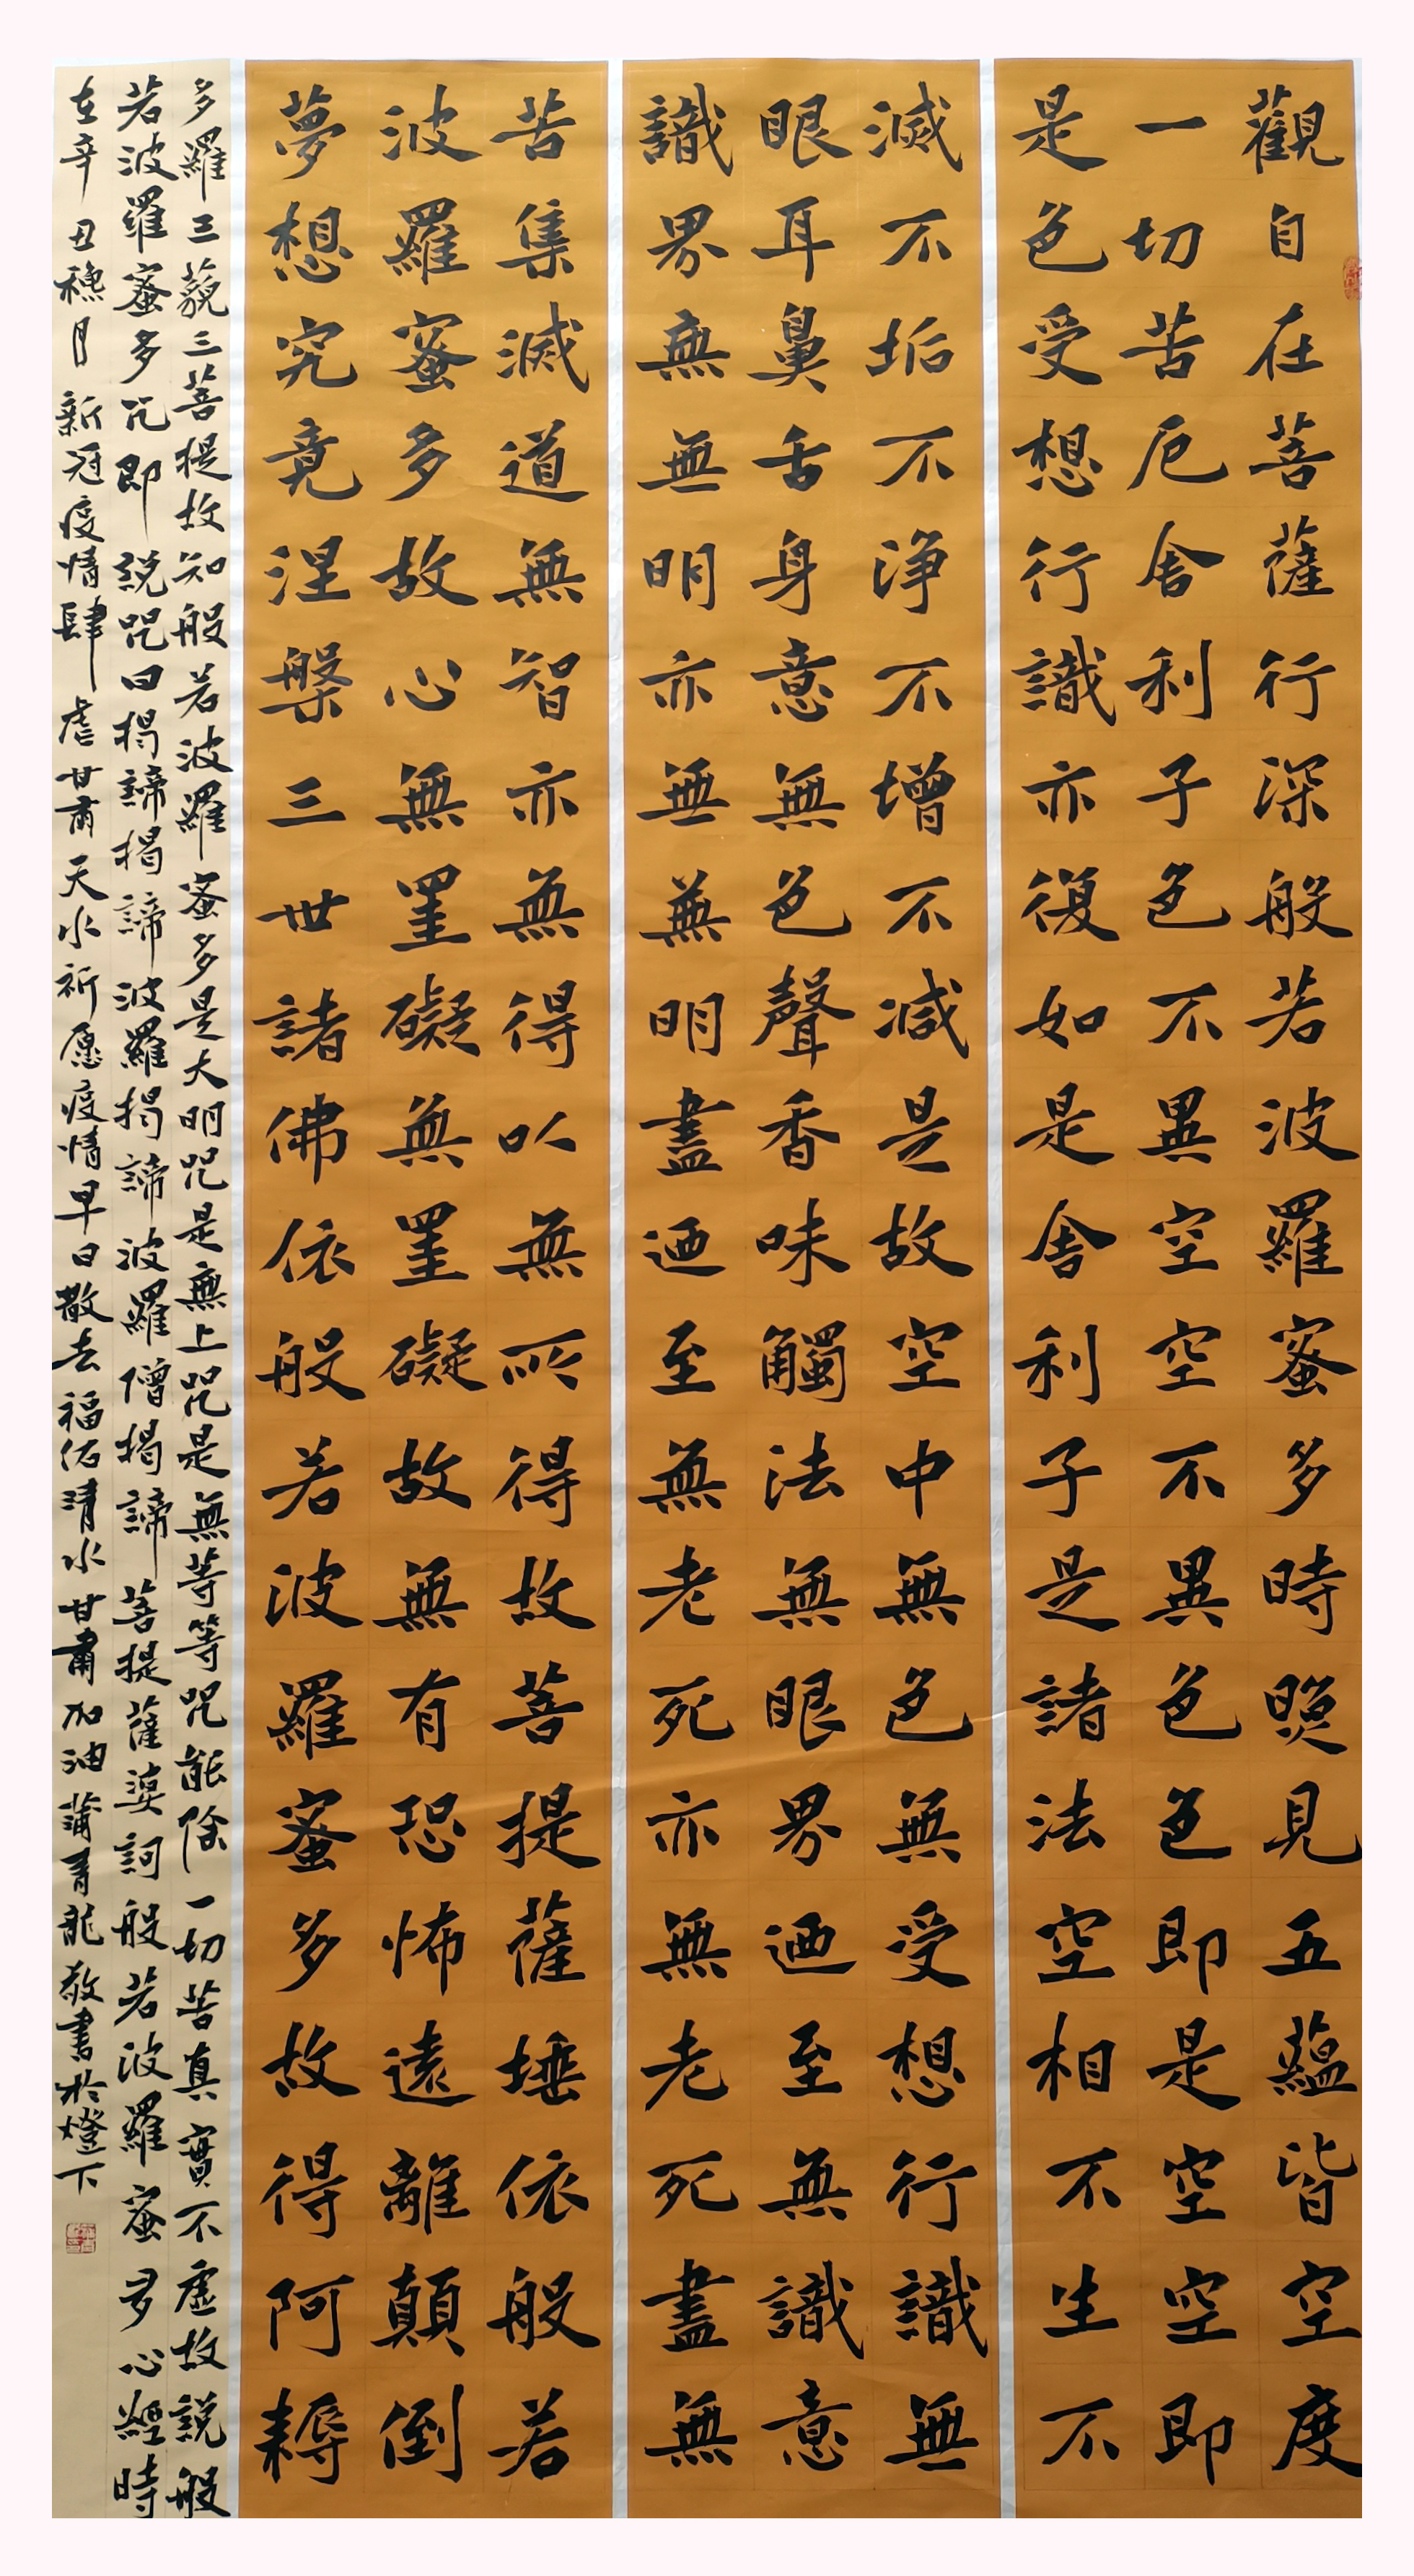 觀自在菩薩行深般若波羅蜜多時照見五蘊皆空度
一切苦厄舍利子色不異空空不異色色即是空空即
是色受想行識亦復如是舍利子是諸法空相不生不
滅不垢不淨不增不減是故空中無色無受想行識無
眼耳鼻舌身意無色聲香味觸法無眼界廼至無識意
識界無無明亦無無明盡廼至無老死亦無老死盡無
苦集滅道無智亦無得以無所得故菩提薩埵依般若
波羅蜜多故心無罣礙無罣礙故無有恐怖遠離顛倒
夢想究竟涅槃三世諸佛依般若波羅蜜多故得阿耨
多羅三藐三菩提故知般若波羅蜜多是大明咒是無上咒是無等等咒能除一切苦真實不虛故說般
若波羅蜜多咒即說咒曰揭諦揭諦波羅揭諦波羅僧揭諦菩提薩婆訶般若波羅蜜多心經時
在辛丑穐月新冠疫情肆虐甘肅天水祈愿疫情早日散去福佑清水甘肅加油蒲青龍敬書於燈下